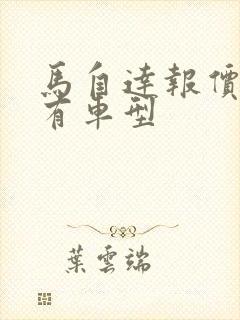 馬自達報價
有車型
葉雲端